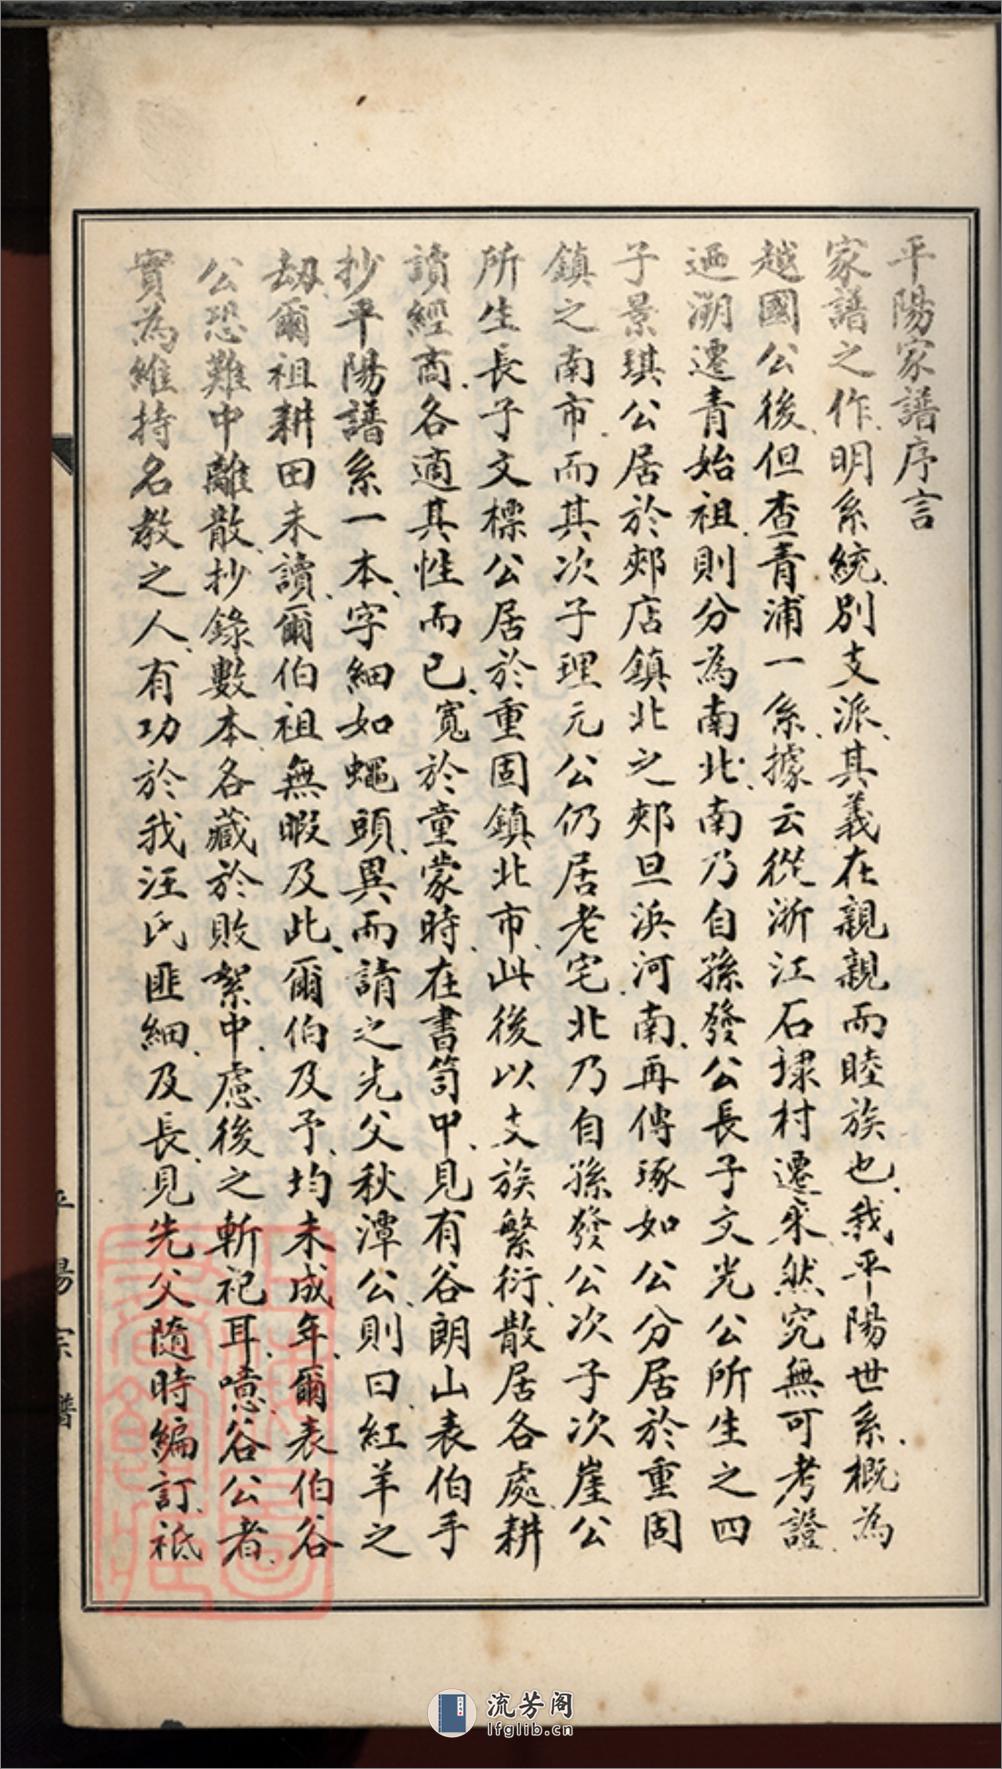 平陽家譜序言
家譜之作明系統別支派其義在親親而睦族也我平陽世系概為
越國公後但查青浦一系據云從浙江石琭村遷來然究無可考證
迺溯遷青始祖則分為南北南乃自孫發公長子文光公所生之四
子景琪公居於郟店鎮北之郟旦浜河南再傳琢如公分居於重固
鎮之南市而其次子理元公仍居老宅北乃自孫發公次子次崖公
所生長子文標公居於重固鎮北市此後以支族繁衍散居各處耕
讀經商各適其性而已寬於童蒙時在書笥中見有谷朗山表伯手
抄平陽譜系一本字細如蠅頭異而請之先父秋潭公則曰紅羊之
劫爾祖耕田未讀爾伯祖無暇及此爾伯及予均未成年爾表伯谷
公恐難中離散抄錄數本各藏於敗絮中慮後之斬祀耳噫谷公者
實為維持名教之人有功於我汪氏匪細及長見先父隨時編訂祗
平陽宗譜
流芳阁
lfglib.cn